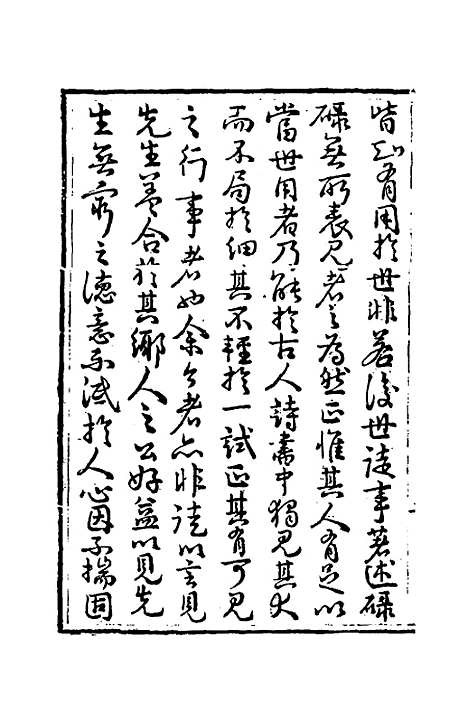 皆知有用於世非若後世徒事著述碌
碌無所表見者之為然正惟其人有足以
當世用者乃能於古人詩書中獨見其大
而不局於細其不輕於一試正其有可見
之行事者也余令者亦非徒以言見
先生蓋合於其鄉人之公好益以見先
生無窮之德意不泯於人心因不揣固